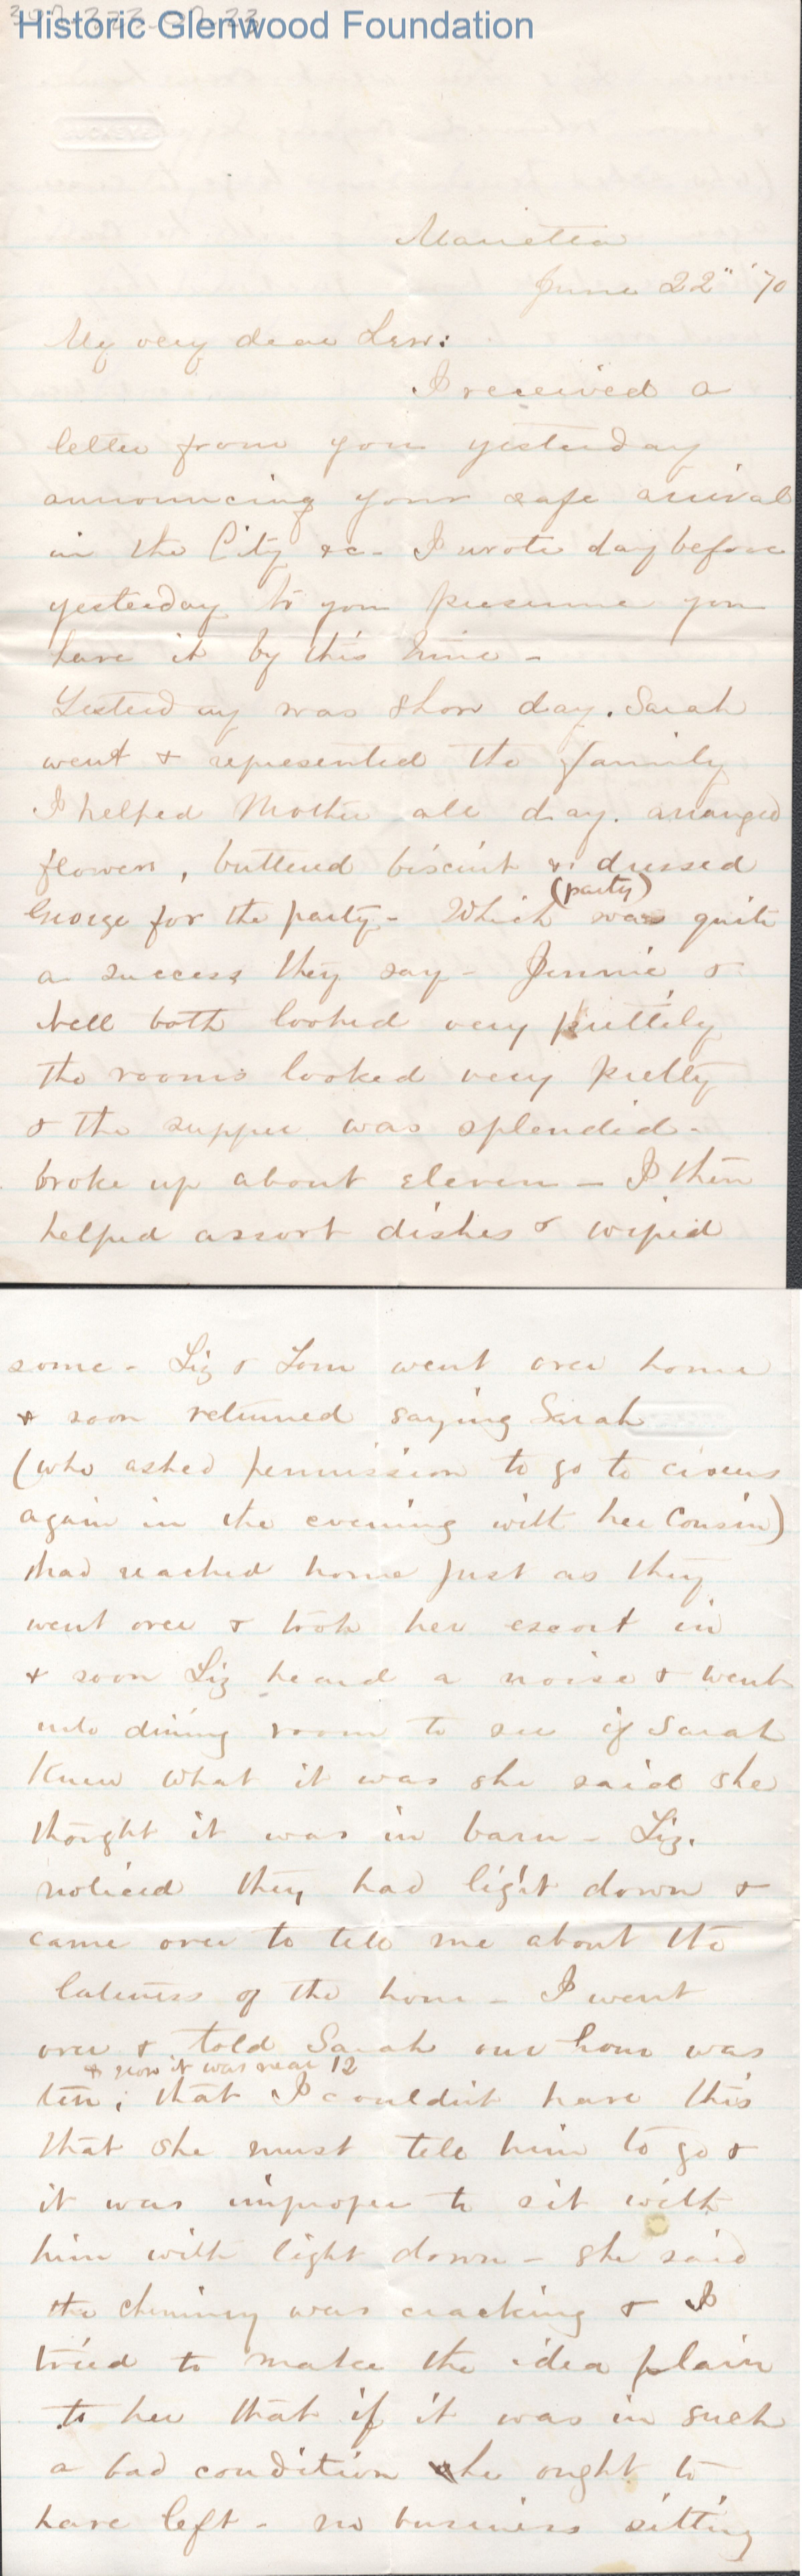 Historic Glenwood Foundation
Marietta
June 22" '70
My very dear Lew:
I received a
letter from you yesterday
announcing your safe arrival
in the City &c- I wrote day before
yesterday to you presume you
have it by this time -
Yesterday was show day. Sarah
went & represented the family
I helped Mother all day. arranged
flowers, buttered biscuit & dressed
(party)
George for the party - Which was quite
a success they say - Jennie &
Nell both looked very prettily
the rooms looked very pretty
& the supper was splendid -
broke up about eleven - I then
helped assort dishes & wiped
some - Liz & Tom went over home
& soon returned saying Sarah
(who asked permission to go to circus
again in the evening with her Cousin)
had reached home just as they
went over & took her escort in
& soon Liz heard a noise & went
into dining room to see if Sarah
knew what it was she said she
thought it was in barn - Liz.
noticed they had light down &
came over to tell me about the
lateness of the hour - I went
over & told Sarah our hour was
& now it was near 12
ten; that I couldn't have this
that she must tell him to go &
it was improper to sit with
him with light down - she said
the chimney was cracking & I
tried to make the idea plain
to her that if it was in such
a bad condition he ought to
have left - no business sitting